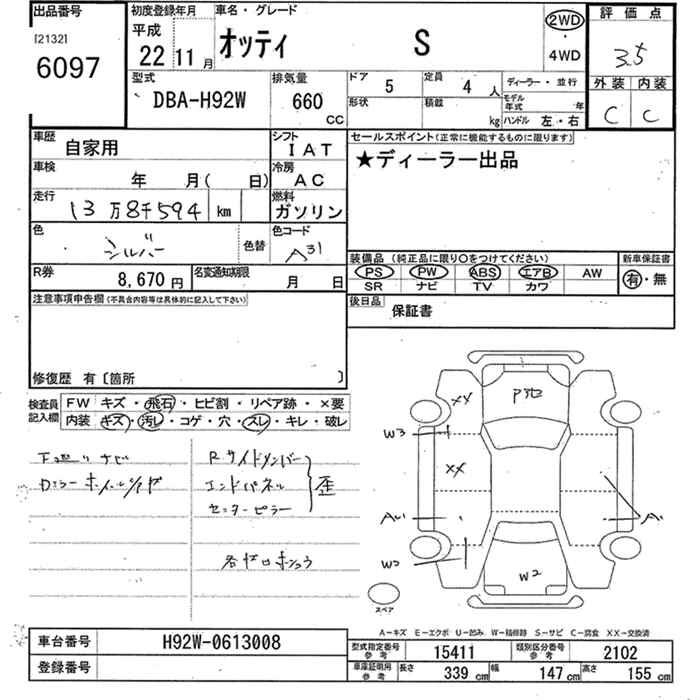 出品番号
[2132]
6097
初度登録年月
平成
22年11月
車名・グレード
オッティ S
2WD
・
4WD
評価点
3.5
外装 内装
C C
型式
DBA-H92W
排気量
660
CC
ドア 5
定員 4人
ディーラー・並行
形状
積載 kg
モデル年式 年
ハンドル 左・右
車歴 自家用
シフト IAT
車検 年 月( 日)
冷房 AC
走行 13万8千594 km
燃料 ガソリン
色 シルバー
色替
色コード A31
R券 8,670円
名変通知期限 月 日
セールスポイント(正常に機能するものに限ります)
★ディーラー出品
装備品(純正品に限り○をつけてください)
新車保証書
PS PW ABS エアB AW
有・無
SR ナビ TV カワ
後日品 保証書
注意事項申告欄(不具合内容等は具体的に記入して下さい)
修復歴 有〔箇所 〕
検査員記入欄
FW キズ・飛石・ヒビ割・リペア跡・×要
内装 キズ・汚レ・コゲ・穴・スレ・キレ・破レ
Rサイドメンバー
エンドパネル
センターピラー
歪
XX
W3
XX
A1
W2
W2
A1
スペア
A－キズ E－エクボ U－凹み W－補修跡 S－サビ C－腐食 XX－交換済
車台番号 H92W-0613008
登録番号
型式指定番号 参考 15411
類別区分番号 参考 2102
車庫証明用 参考 長さ 339cm 幅 147cm 高さ 155cm